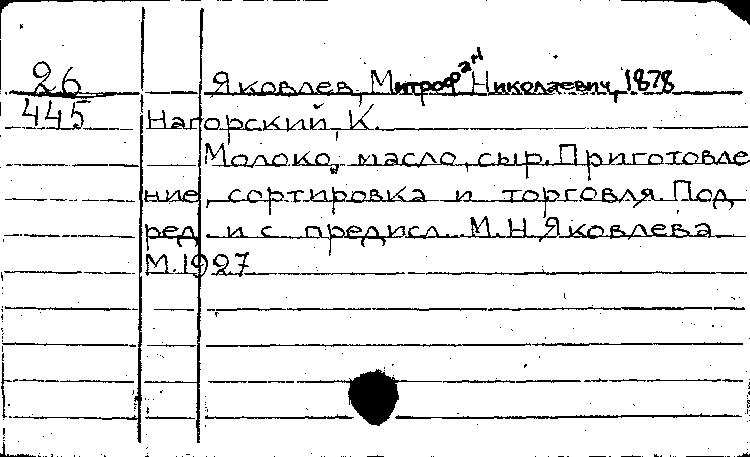 26
445
Яковлев, Митрофан Николаевич, 1878
Нагорский, К.
Молоко, масло, сыр. Приготовле
ние, сортировка и торговля. Под
ред. и с предисл. М.Н. Яковлева
М. 1927